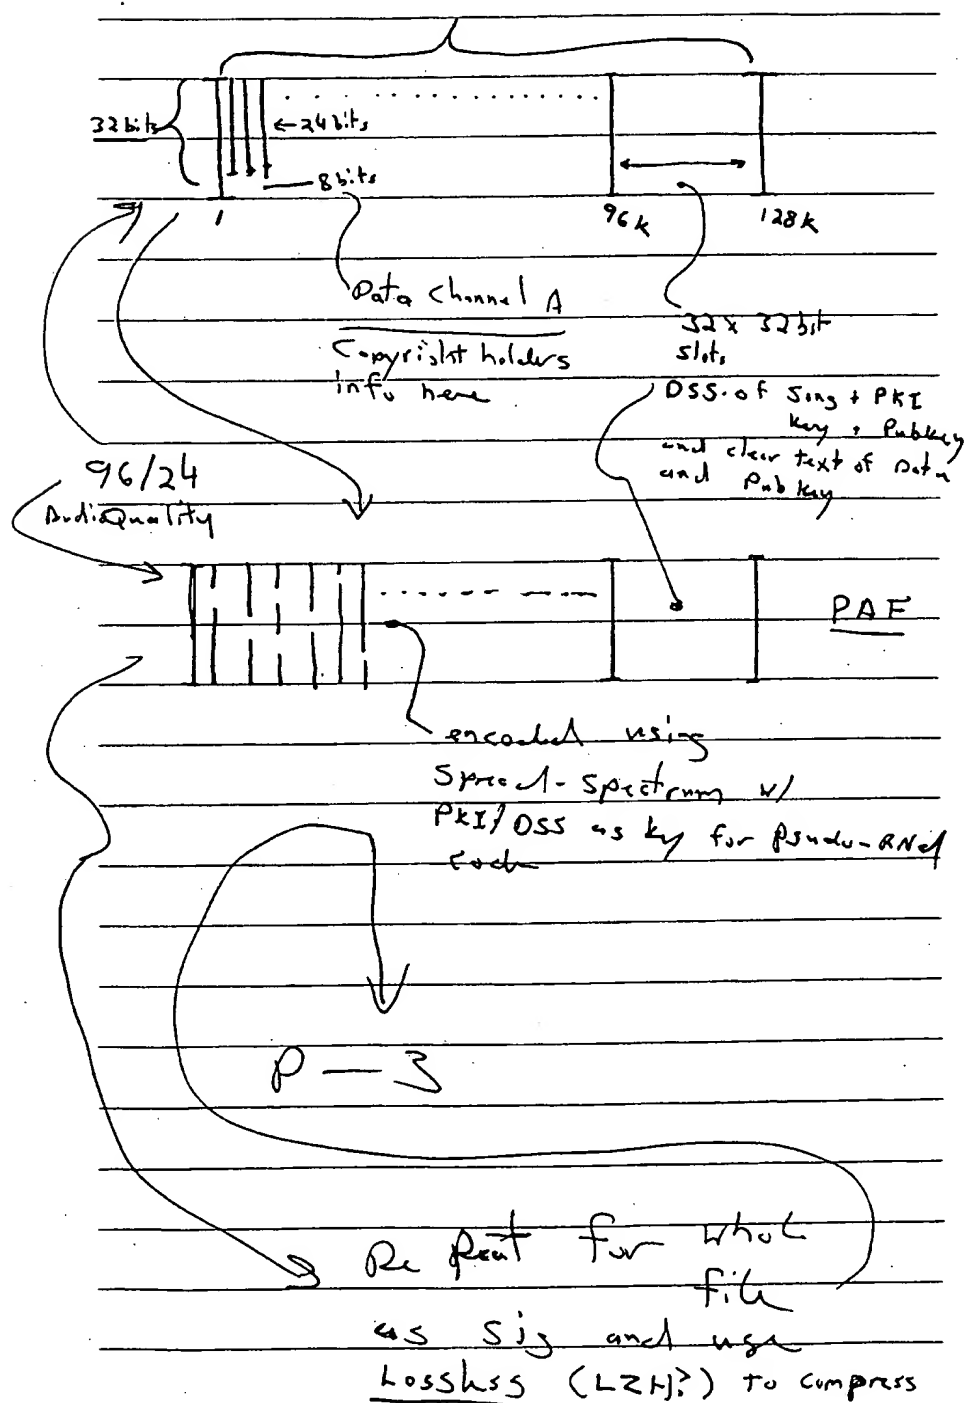 32 bits
←24 bits
8 bits
1
96k
128k
Data Channel A
Copyright holders
info here
32 x 32 bit
slots
DSS of Song + PKI
Key + Pubkey
and clear text of Data
and Pub Key
96/24
Audio Quality
PAF
encoded using
Spread-Spectrum w/
PKI/DSS as key for Psudo-RNd
code
P-3
Repeat for whole
file
as sig and use
Lossless (LZH?) to compress